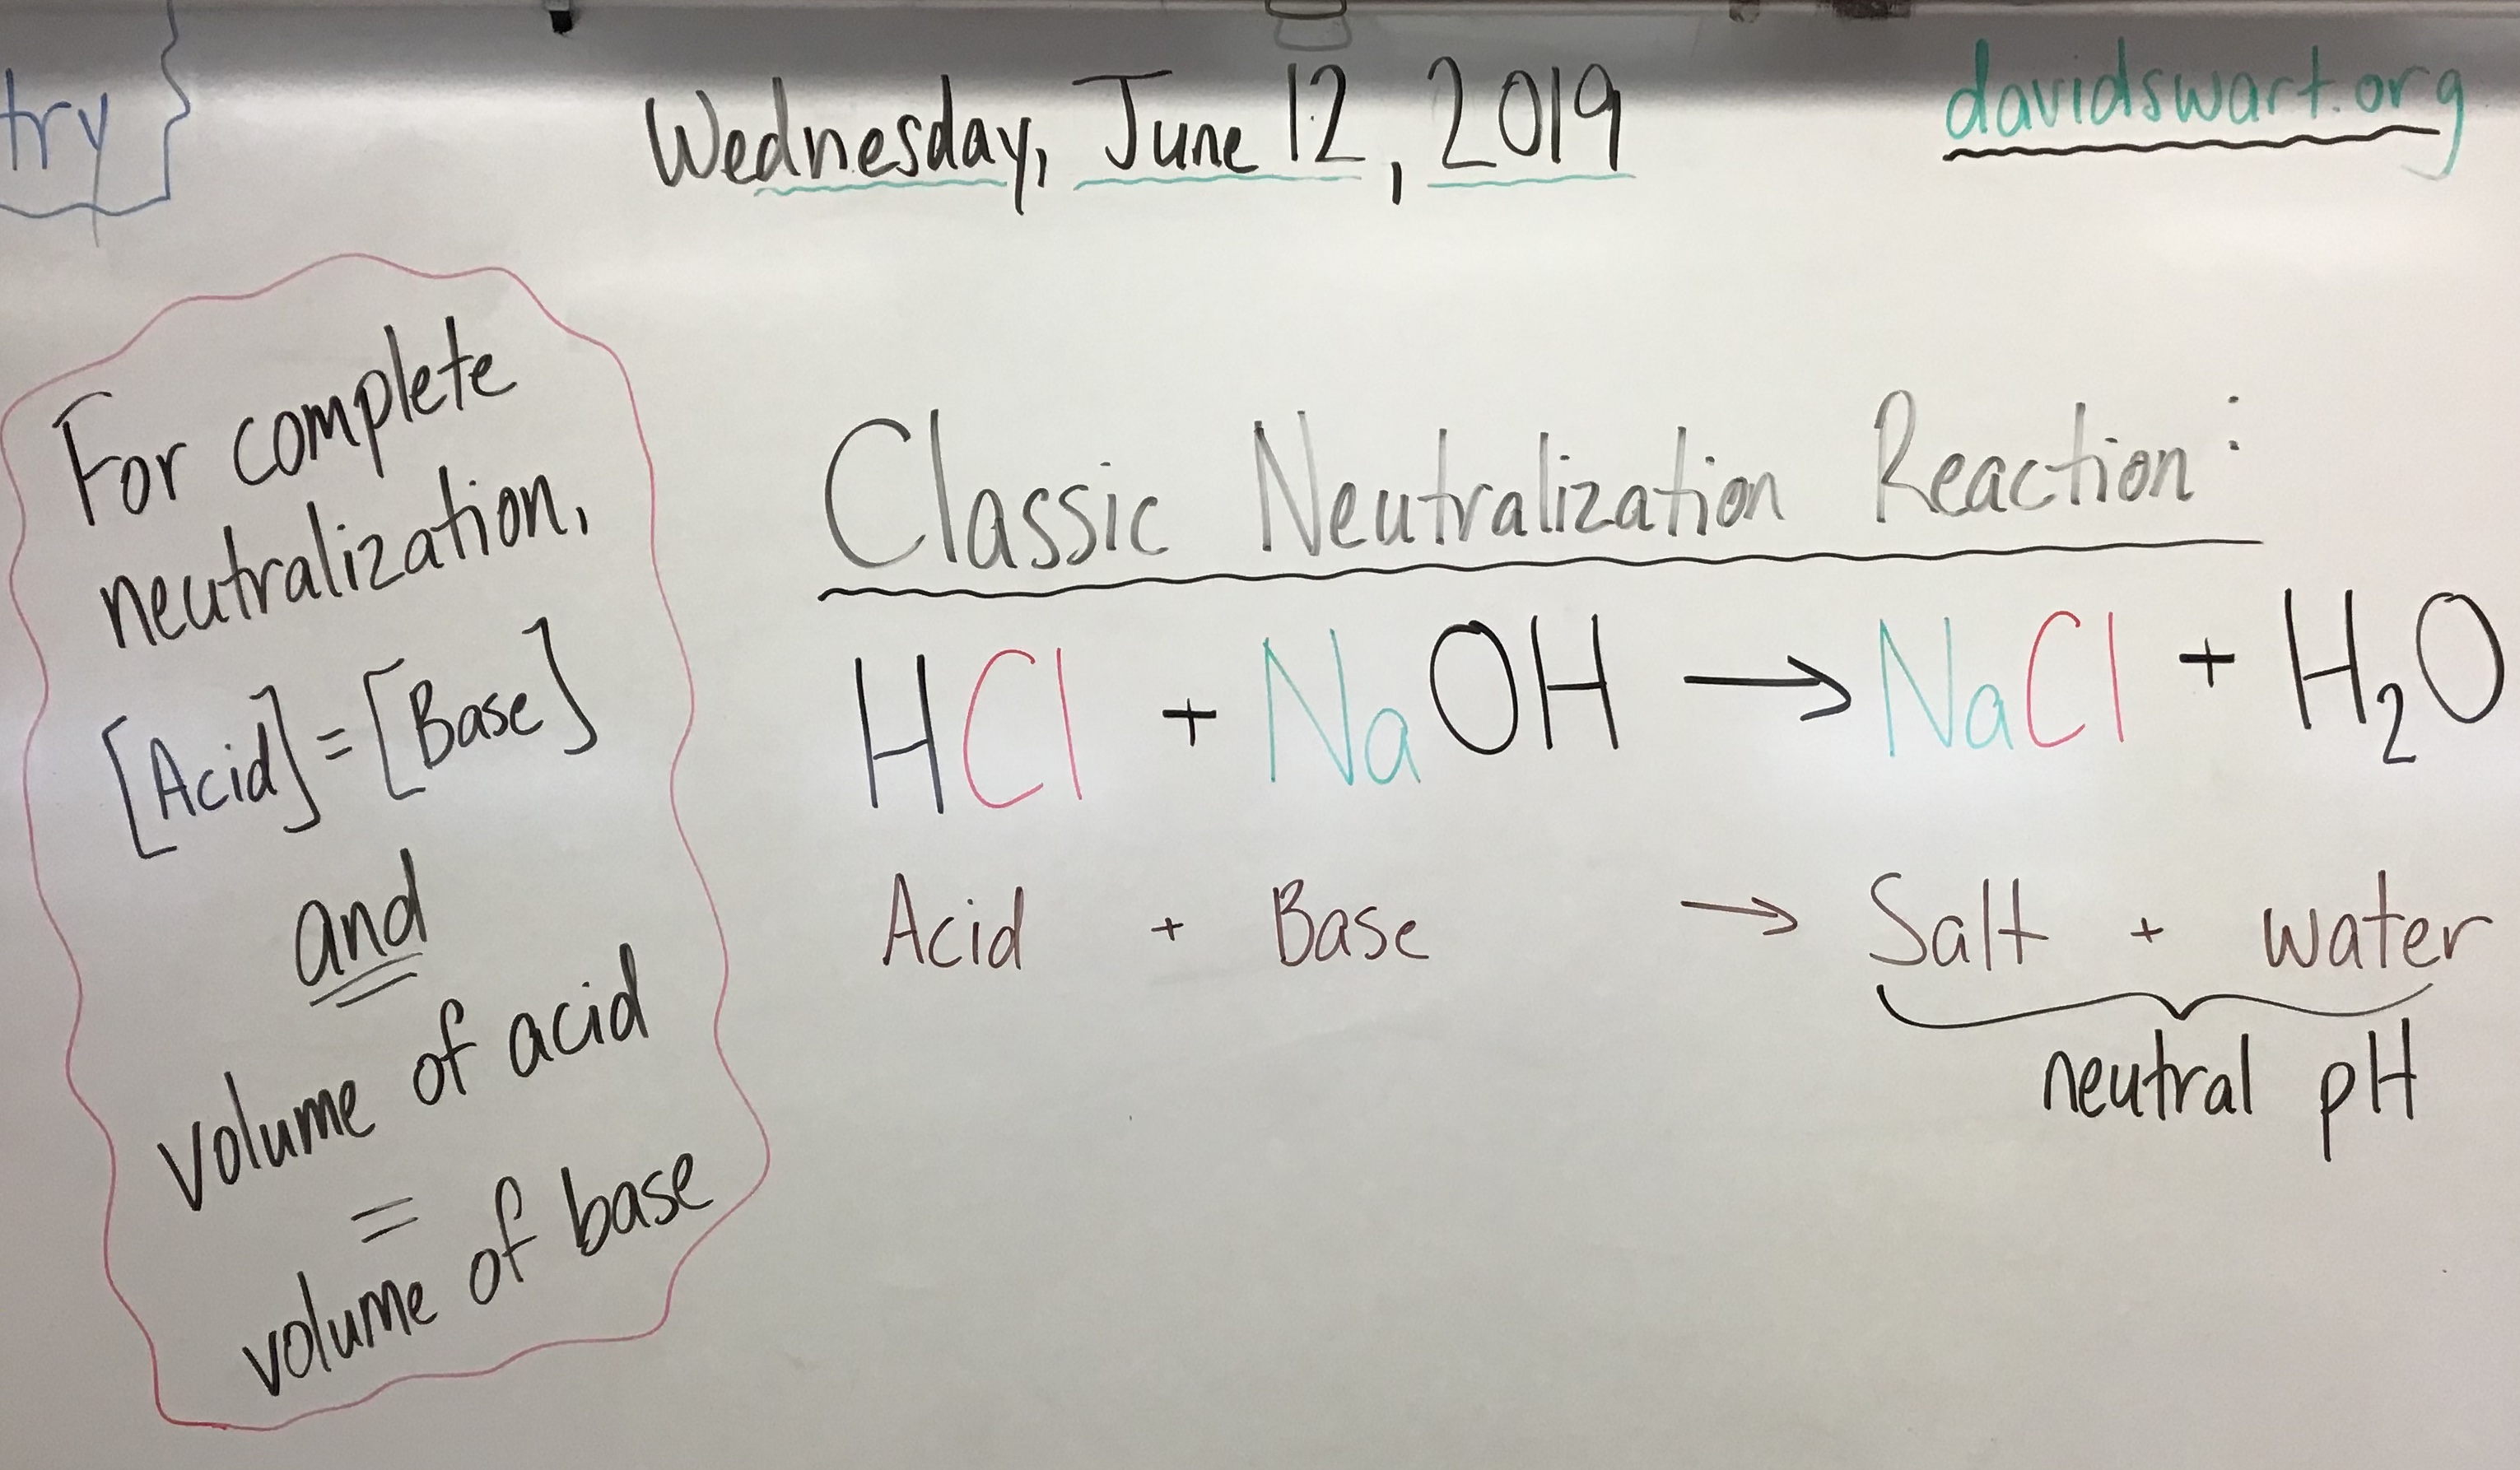 try
Wednesday, June 12, 2019
davidswart.org
For complete
neutralization,
[Acid] = [Base]
and
volume of acid
=
volume of base
Classic Neutralization Reaction:
HCl + NaOH → NaCl + H₂O
Acid + Base → Salt + water
neutral pH